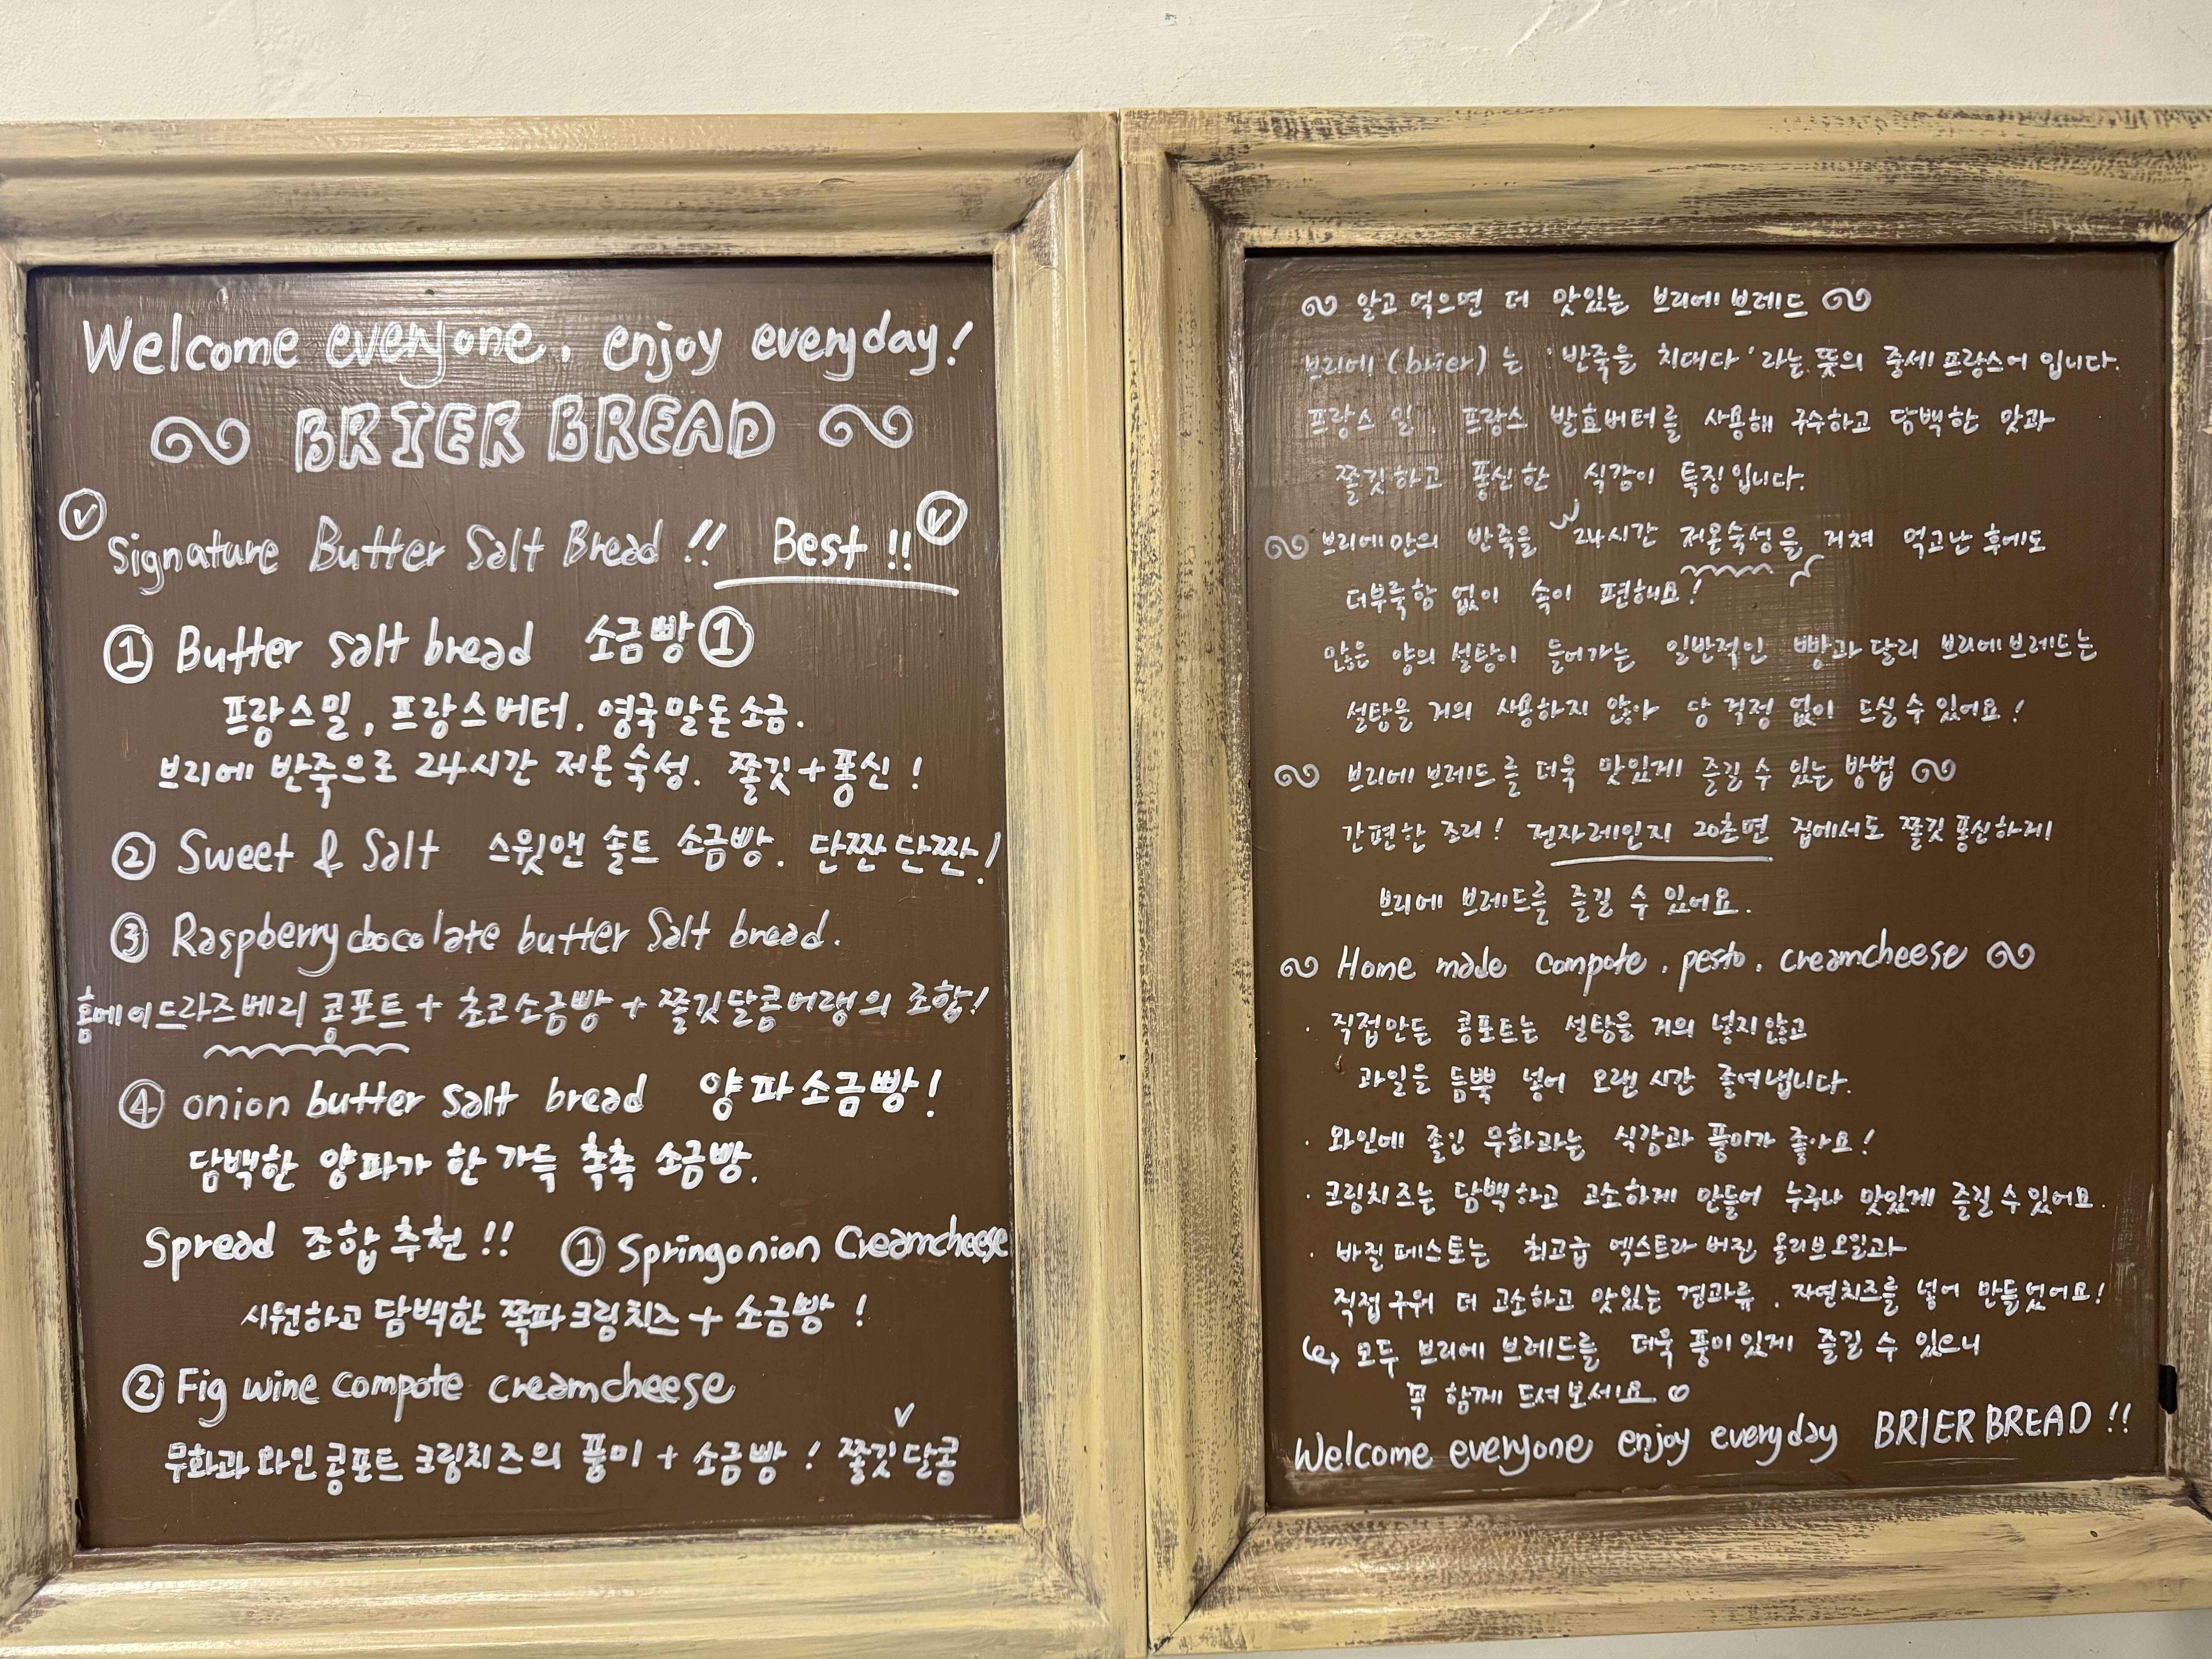 Welcome everyone, enjoy everyday!
BRIER BREAD
Signature Butter Salt Bread !! Best !!
① Butter salt bread 소금빵 ①
프랑스밀, 프랑스버터, 영국말돈소금.
브리에 반죽으로 24시간 저온숙성. 쫄깃+퐁신!
② Sweet & Salt 스윗앤 솔트 소금빵. 단짠단짠!
③ Raspberry chocolate butter Salt bread.
홈메이드라즈베리 콩포트 + 초코소금빵 + 쫄깃달콤머랭의 조합!
④ onion butter salt bread 양파소금빵!
담백한 양파가 한 가득 촉촉 소금빵.
Spread 조합추천!! ① Springonion Creamcheese
시원하고 담백한 쪽파크림치즈 + 소금빵 !
② Fig wine compote creamcheese
무화과 와인 콩포트 크림치즈의 풍미 + 소금빵 ! 쫄깃 달콤
알고 먹으면 더 맛있는 브리에 브레드
브리에(brier)는 '반죽을 치대다'라는 뜻의 중세 프랑스어 입니다.
프랑스 밀, 프랑스 발효버터를 사용해 구수하고 담백한 맛과
쫄깃하고 퐁신한 식감이 특징입니다.
브리에만의 반죽을 24시간 저온숙성을 거쳐 먹고난 후에도
더부룩함 없이 속이 편해요!
많은 양의 설탕이 들어가는 일반적인 빵과 달리 브리에브레드는
설탕을 거의 사용하지 않아 당 걱정 없이 드실 수 있어요!
브리에 브레드를 더욱 맛있게 즐길 수 있는 방법
간편한 조리! 전자레인지 20초면 집에서도 쫄깃 퐁신하게
브리에 브레드를 즐길 수 있어요.
Home made compote, pesto, creamcheese
· 직접만든 콩포트는 설탕을 거의 넣지않고
과일을 듬뿍 넣어 오랜 시간 졸여냅니다.
· 와인에 졸인 무화과는 식감과 풍미가 좋아요!
· 크림치즈는 담백하고 고소하게 만들어 누구나 맛있게 즐길 수 있어요.
· 바질 페스토는 최고급 엑스트라 버진 올리브오일과
직접구워 더 고소하고 맛있는 견과류, 자연치즈를 넣어 만들었어요!
↳ 모두 브리에 브레드를 더욱 풍미있게 즐길 수 있으니
꼭 함께 드셔보세요
Welcome everyone enjoy everyday BRIER BREAD !!